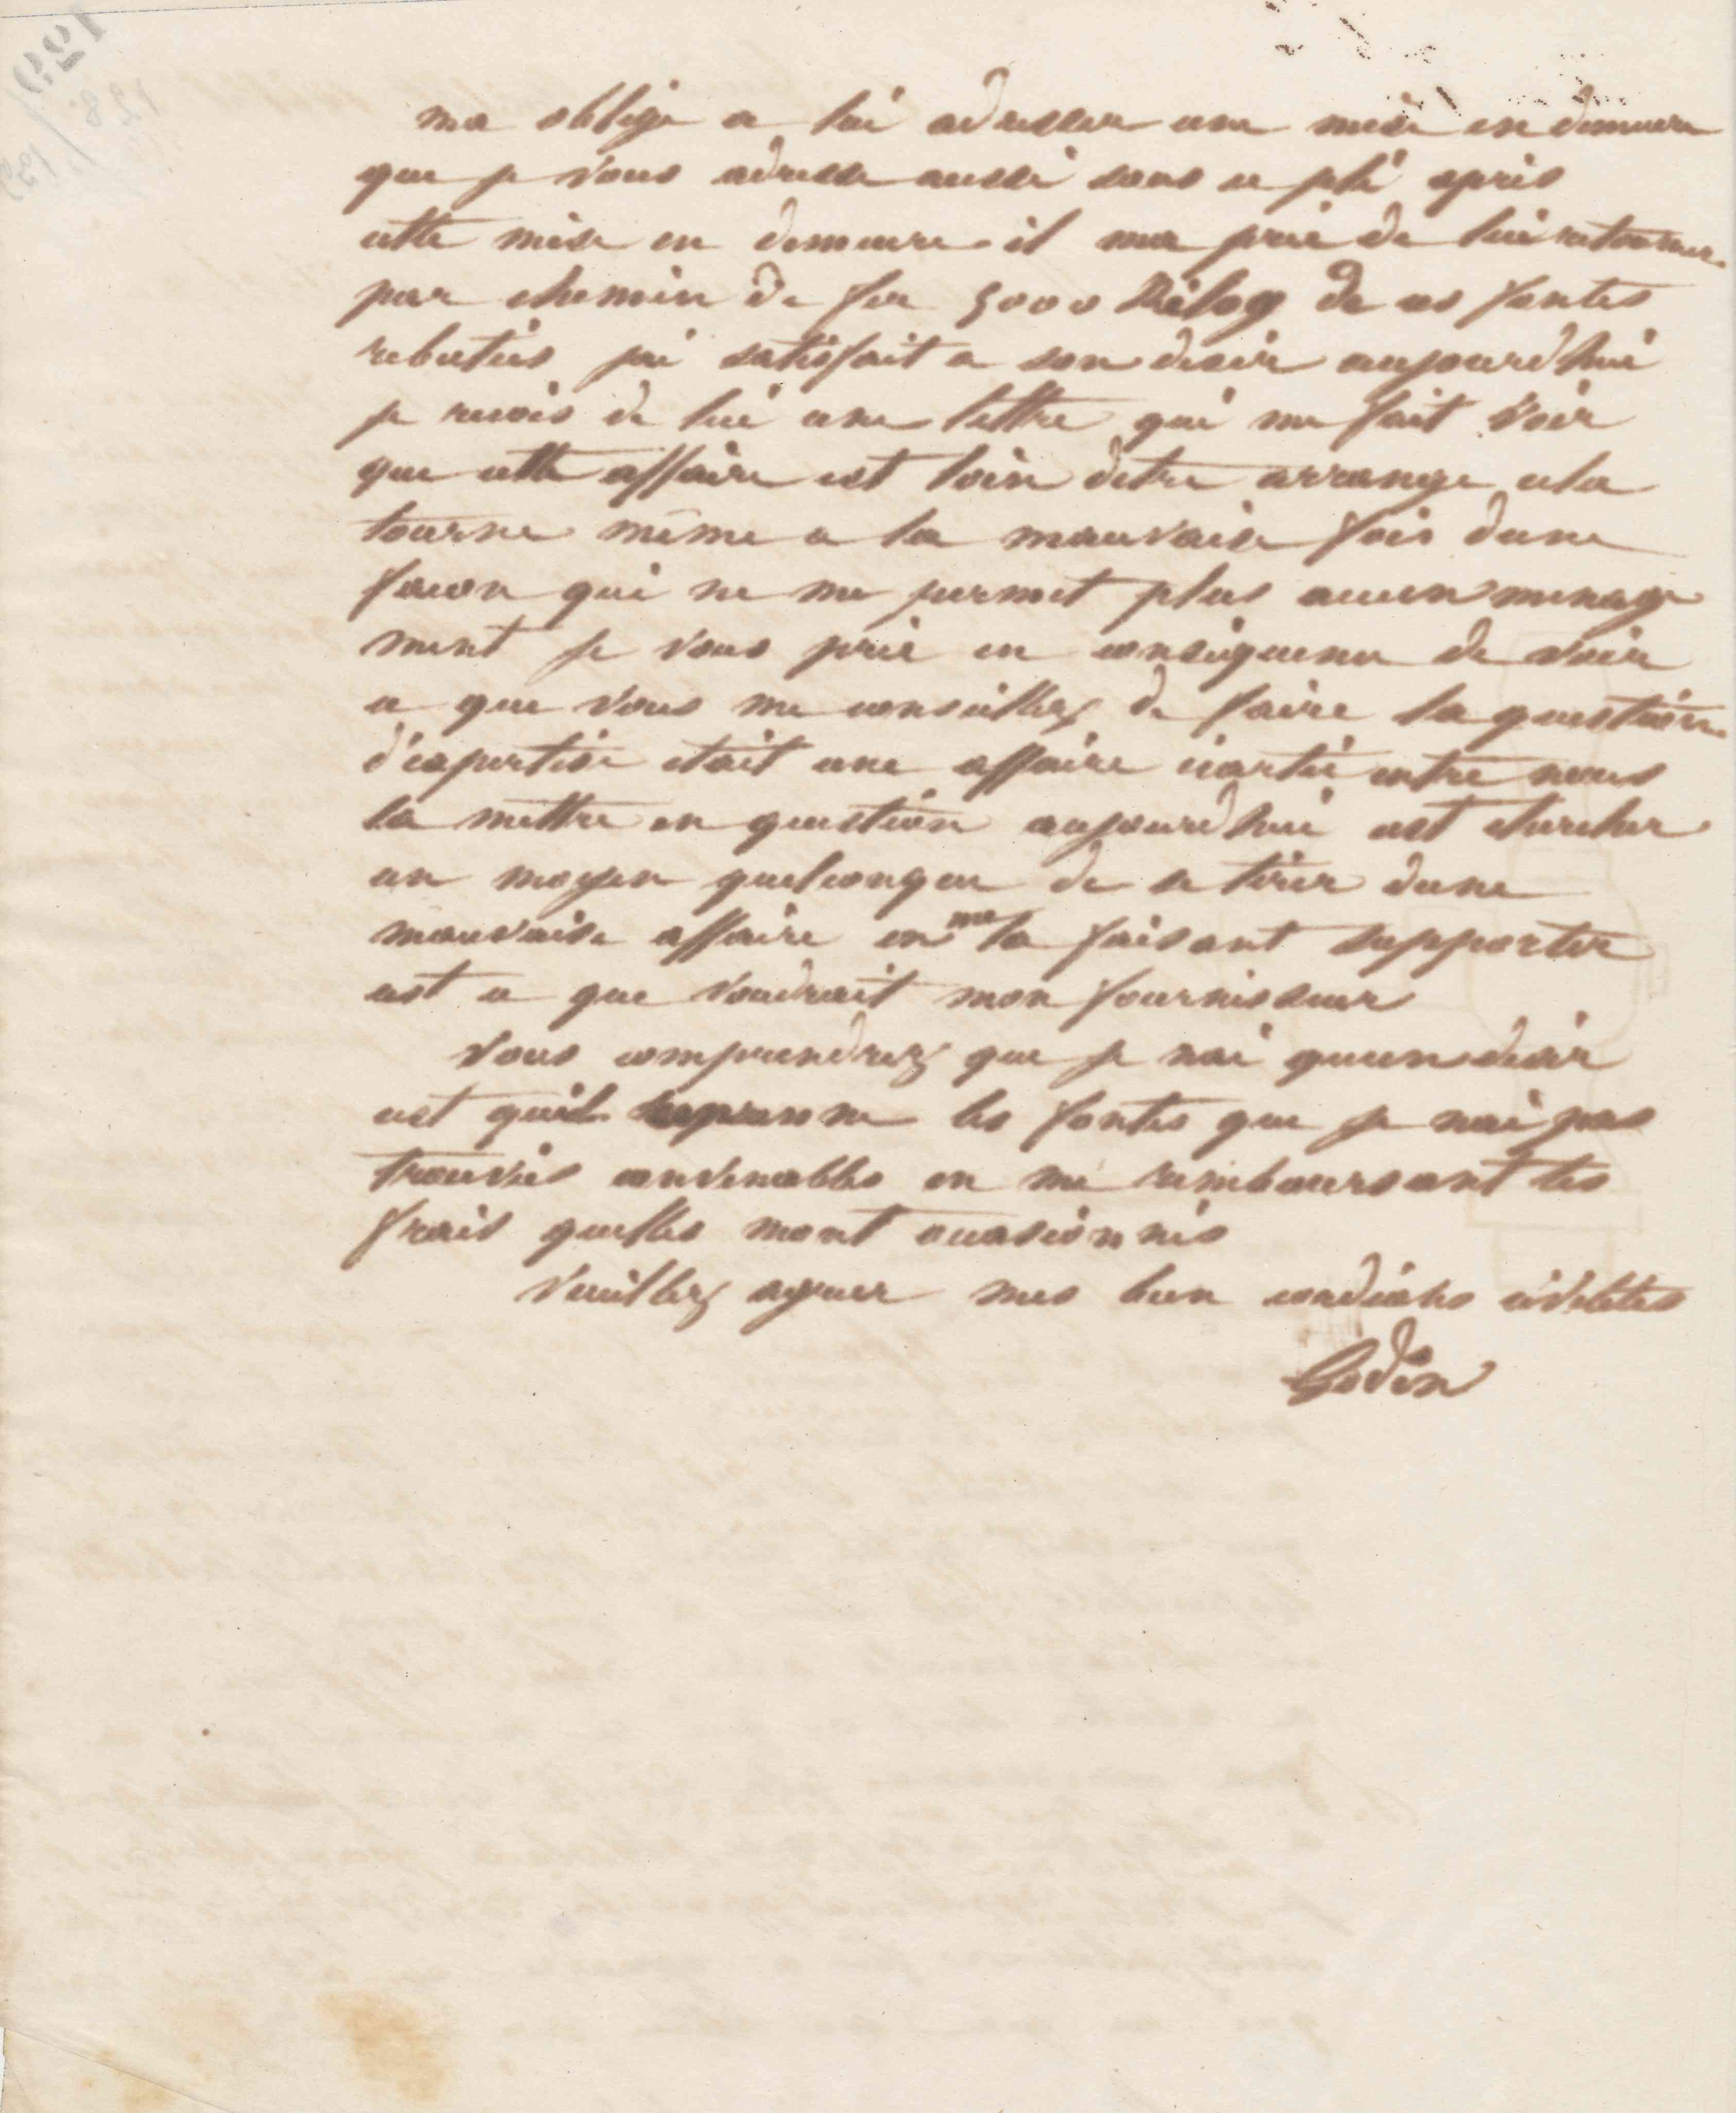 ma obligé a lui adresser une mise en demeure
que je vous adresse aussi sous ce pli après
cette mise en demeure il ma prié de lui retourner
par chemin de fer 5000 Kilog de ces fontes
rebutées jai satisfait a son desir aujourdhui
je recois de lui une lettre qui me fait voir
que cette affaire est loin detre arrangé cela
tourne même a la mauvaise fois dune
facon qui ne me permet plus aucun menage
ment je vous prie en conséquence de voir
ce que vous me conseillez de faire la question
d'éxpertise etait une affaire écartée entre nous
la mettre en question aujourdhui cest chercher
un moyen quelconque de se tirer dune
mauvaise affaire en me la faisant supporter
cest ce que voudrait mon fournisseur
Vous comprendrez que je nai quun desir
cest quil reprenne les fontes que je nai pas
trouvées convenables en me remboursant les
frais quelles mont occasionnés
Veuillez agréer mes bien cordiales civilités
Godin